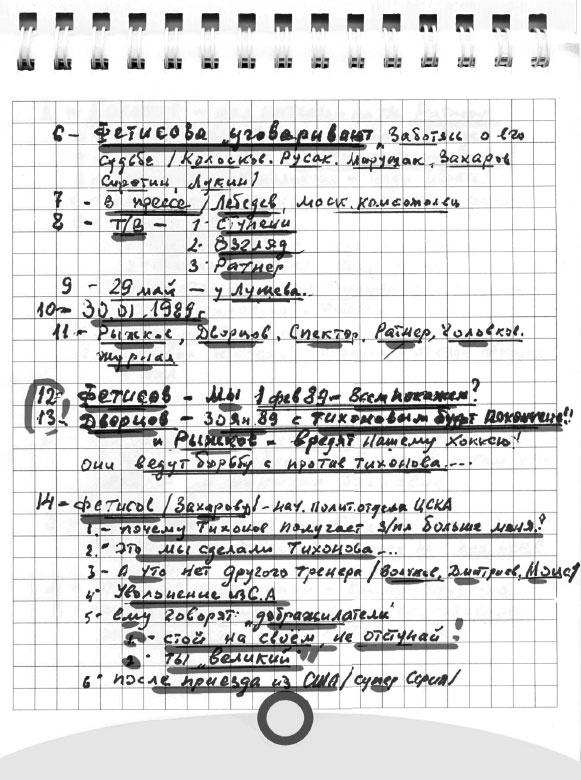 6 - Фетисова „уговаривают„ Заботясь о его
судьбе / Колосков. Русак. Марущак, Захаров
Сиротин, Лукин /
7 - В прессе / Лебедев, моск. комсомолец
8 - Т/В - 1. Ступени
2. Взгляд
3. Ратнер
9 - 29 май - у Лушева..
10 - 30.01.1989 г
11 - Рыжков, Дворцов, Спектор, Ратнер, Головков.
журнал
12 - Фетисов - Мы 1 фев 89 - Всем покажем?
13 - Дворцов - 30 Ян. 89 с Тихоновым будет покончено!!
и Рыжков - вредят нашему хоккею!
они ведут борьбу с против Тихонова....
14 - Фетисов / Захарову / - нач. полит. отдела ЦСКА
1. - почему Тихонов получает з/пл больше меня?
2. Это мы сделали Тихонова...
3 - А что нет другого тренера / Волчков, Дмитриев, Моис/
4. Увольнение из С.А
5 - ему говорят: „доброжилатели"
1 - стой на своём, не отступай!
2. ты „великий"
6. после приезда из США / супер серия /